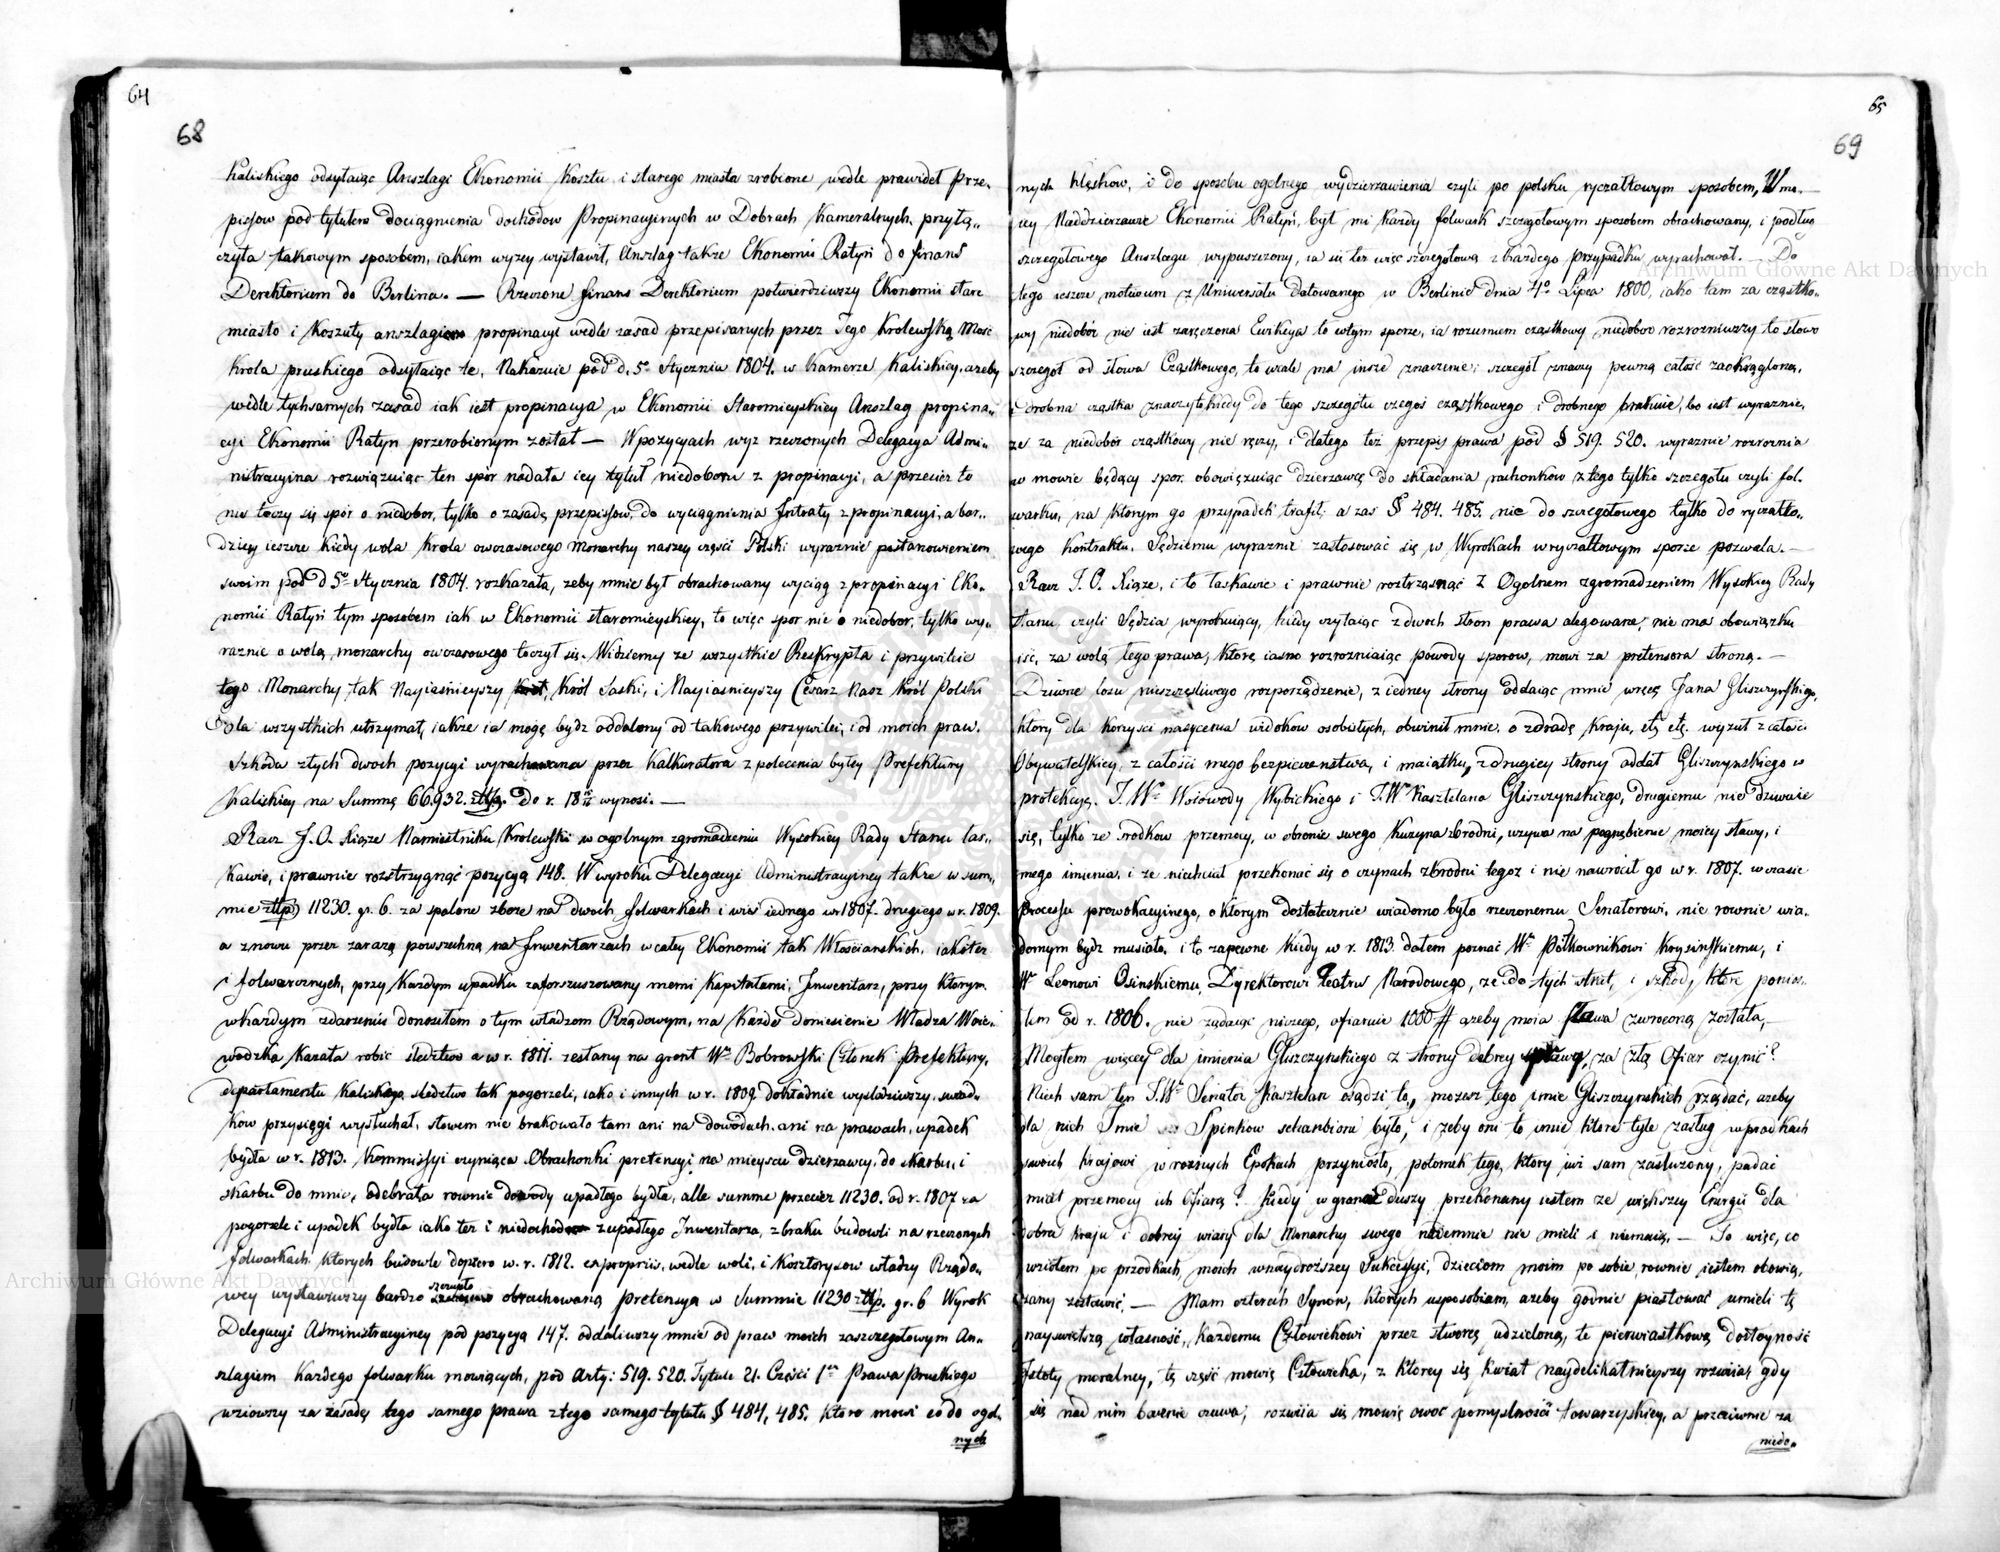 64
68
Kaliskiego odsyłaiąc Anszlagi Ekonomii Kosztu i starego miasta zrobione wedle prawideł Prze-
pisow pod tytułem dociągnienia dochodow Propinacyinych w Dobrach Kameralnych, przyłą-
czyła takowym sposobem, iakem wyzey wystawił, Anszlag takze Ekonomii Ratyń do finans
Derektorium do Berlina. — Rzeczone finans Derektorium potwierdziwszy Ekonomii stare
miasto i Koszuty anszlagiem propinacyi wedle zasad przepisanych przez Jego Krolewską Mość
Krola pruskiego odsyłaiąc te, Nakazuie pod d. 5º Stycznia 1804. w Kamerze Kaliskiey, azeby
wedle tychsamych zasad iak iest propinacya w Ekonomii Staromieyskiey Anszlag propina-
cyi Ekonomii Ratyn przerobionym został — W pozycyach wyz rzeczonych Delegacya Admi-
nistracyina rozwiązuiąc ten spór nadała iey tytuł niedoboru z propinacyi, a przeciez to
nie toczy się spór o niedobor, tylko o zasadę przepisow, do wyciągnienia Intraty z propinacyi, a bar-
dziey ieszcze kiedy wola Krola owczasowego Monarchy naszey części Polski wyraznie postanowieniem
swoim pod d 5º Stycznia 1804. rozkazała, zeby mnie był obrachowany wyciąg z propinacyi Eko-
nomii Ratyń tym sposobem iak w Ekonomii staromieyskiey, to więc spor nie o niedobor, tylko wy-
raznie o wolą monarchy owczasowego toczył się. Widziemy ze wszystkie Reskrypta i przywileie
tego Monarchy tak Nayiaśnieyszy Król Saski, i Nayiasnieyszy Cesarz Nasz Król Polski
dla wszystkich utrzymał, iakze ia mogę bydz oddalony od takowego przywileiu, i od moich praw.
Szkoda z tych dwoch pozycyi wyrachowana przez Kalkulatora z polecenia byłey Prefektury
Kaliskiey na Summę 66.932. złłp. do r. 18 11/12 wynosi. —
Racz J. O. Xiąze Namiestniku Krolewski w ogolnym zgromadzeniu Wysokiey Rady Stanu łas-
kawie, i prawnie rozstrzygnąć pozycyą 148. W wyroku Delegacyi Administracyiney takze w sum-
mie złłp 11230. gr. 6. za spalone zboze na dwoch folwarkach i wsi iednego w r 1807. drugiego w r. 1809.
a znowu przez zarazą powszechną na Inwentarzach w całey Ekonomii tak Włościanskich, iako tez
i folwarcznych, przy Kazdym upadku zaforszuszowany memi Kapitałami, Inwentarz, przy ktorym
w kazdym zdarzeniu donosiłem o tym władzom Rządowym, na Kazde doniesienie Władza Woie-
wodzka kazała robic sledztwo a w r. 1811. zesłany na grunt Wº Bobrowski Członek Prefektury
departamentu Kaliskiego, sledztwo tak pogorzeli, iako i innych w r. 1809 dokładnie wysledziwszy, swiad-
kow przysięgi wysłuchał, słowem nie brakowało tam ani na dowodach, ani na prawach, upadek
bydła w r. 1813. Kommissyi czyniąca Obrachonki pretensyi na mieyscu dzierzawcy, do skarbu, i
skarbu do mnie, odebrała rownie dowody upadłego bydła, alle summe przeciez 11230. od r. 1807 za
pogorzele i upadek bydła iako tez i niedochod z upadłego Inwentarza, z braku budowli na rzeczonych
folwarkach. Ktorych budowle dopiero w. r. 1812. ex propriis, wedle woli, i Kosztorysow władzy Rządo-
wey wystawiwszy bardzo szczupło obrachowaną pretensyą w Summie 11230 złłp. gr. 6 Wyrok
Delegacyi Administracyiney pod pozycyą 147. oddaliwszy mnie od praw moich zaszczegołowym An-
szlagiem Kazdego folwarku mowiących, pod Arty: 519. 520. Tytule 21. Części 1er Prawa Pruskiego
wziowszy za zasadę tego samego prawa z tego samego tytułu § 484, 485. Ktore mowi co do ogol-
nych
65
69
nych klęskow, i do sposobu ogolnego wydzierzawienia czyli po polsku ryczałtowym sposobem, W mo-
iey Naddzierzawie Ekonomii Ratyń, był mi Kazdy folwark szczegołowym sposobem obrachowany, i podług
szczegołowego Anszlagu wypuszczony, ia się tez więc szczegołową z kazdego przypadku wyrachował. — Do
tego ieszcze motivum z Uniwersału datowanego w Berlinie dnia 4º Lipca 1800, iako tam za cząstko-
wy niedobór nie iest zaręczona Ewikcya to w tym sporze, ia rozumiem cząstkowy niedobor rozrozniwszy to słowo
szczegoł od słowa Cząstkowego, to wcale ma insze znaczenie; szczegół znaczy pewną całość zaokrągloną,
i drobna cząstka znaczy to kiedy do tego szczegołu czegoś cząstkowego i drobnego brakuie, bo iest wyraznie,
ze za niedobor cząstkowy nie ręczy, i dlatego też przepis prawa pod § 519. 520. wyraznie rozroznia
w mowie będący spor. obowięzuiąc dzierzawcę do składania rachonkow z tego tylko szczegołu czyli fol-
warku, na ktorym go przypadek trafił; a zaś § 484. 485. nie do szczegołowego tylko do ryczałto-
wego kontraktu. Sędziemu wyraznie zastosować się w Wyrokach w ryczałtowym sporze pozwala. —
Racz J. O. Xiąze, i to łaskawie i prawnie roztrząsnąć z Ogolnem zgromadzeniem Wysokiey Rady
Stanu, czyli Sędzia wyrokuiący, kiedy czytaiąc z dwoch stron prawa alegowane, nie ma obowiązku
iść, za wolą tego prawa, które iasno rozrozniaiąc powody sporow, mowi za pretensora stroną. —
Dziwne losu nieszczęśliwego rozporządzenie, z iedney strony oddaiąc mnie w ręce Jana Gliszczyńskiego,
ktory dla korzyści nasycenia widokow osobistych, obwinił mnie, o zdradę Kraiu, etc etc. wyzuł z całości
Obywatelskiey, z całości mego bezpieczenstwa, i maiątku, z drugiey strony oddał Gliszczynskiego w
protekcyę. J. Wº Woiewody Wybickiego i J. Wº Kasztelana Gliszczynskiego, drugiemu nie dziwuie
się, tylko ze srodkow przemocy, w obronie swego Kuzyna zbrodni, uzywa na pognębienie moiey sławy, i
mego imienia, i ze niechciał przekonać się o czynach zbrodni tegoz i nie nawrócił go w r. 1807. w czasie
Processu prowokacyinego, o ktorym dostatecznie wiadomo było rzeczonemu Senatorowi, nie rownie wia-
domym bydz musiało, i to zapewne kiedy w r. 1813. dałem poznać Wº Półkownikowi Krysinskiemu, i
Wº Leonowi Osinskiemu, Dyrektorowi Teatru Narodowego, ze do tych strat, i szkod, ktore ponio-
słem od r. 1806. nie ządaiąc niczego, ofiaruie 1000 # azeby moia sława zwroconą została, —
Mogłem więcey dla imienia Gliszczynskiego z strony dobrey sławy, za złą Ofiar czynić?
Niech sam ten J. Wº Senator Kasztelan osądzi to, mozesz tego imie Gliszczynskich rządać, azeby
dla nich Imie Spinkow schanbione było, i zeby oni to imie ktore tyle zasług w przodkach
swoich krajowi w roznych Epokach przyniosło, potomek tego, ktory iuż sam zasłuzony, padać
miał przemocy ich Ofiarą? kiedy w granie duszy przekonany iestem ze większey Energii dla
dobra kraju i dobrey wiary dla Monarchy swego nademnie nie mieli i niemaią. — To więc, co
wziołem po przodkach moich w naydroższey Sukcessyi, dzieciom moim po sobie, rownie iestem obowią-
zany zostawić, — Mam czterech Synow, ktorych usposobiam, azeby godnie piastować umieli tę
nayświętszą własność, kazdemu Człowiekowi przez stworcę udzieloną, te pierwiastkową dostoyność
Istoty moralney, tę część mowię Człowieka, z ktorey się kwiat naydelikatnieyszy rozwiia, gdy
się nad nim baczenie czuwa, rozwiia się mowię owoc pomyslności towarzyskiey, a przeciwnie za
niedo-
Archiwum Główne Akt Dawnych
Archiwum Główne Akt Dawnych